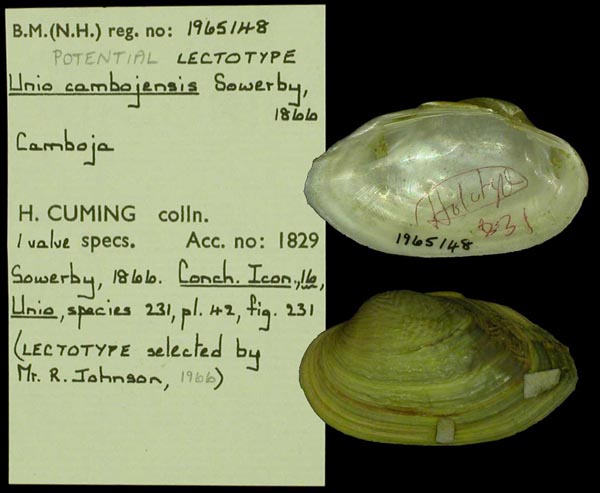 B.M.(N.H.) reg. no: 1965148
POTENTIAL LECTOTYPE
Unio cambojensis Sowerby,
1866
Camboja
H. CUMING colln.
1 valve specs. Acc. no: 1829
Sowerby, 1866. Conch. Icon., 16,
Unio, species 231, pl. 42, fig. 231
(LECTOTYPE selected by
Mr. R. Johnson, 1966)
Holotype
231
1965148